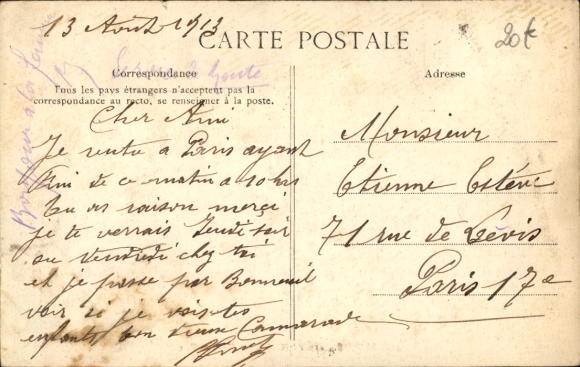 13 Août 1913
20€
CARTE POSTALE
Correspondance
Tous les pays étrangers n'acceptent pas la
correspondance au recto, se renseigner à la poste.
Cher Ami
Je rentre à Paris ayant
fini de ce matin a 10 hrs
tu as raison merci
je te verrais Jeudi soir
ou Vendredi chez toi
et je passe par Bonneuil
voir si je vois tes
enfants ton vieux Camarade
Adresse
Monsieur
Etienne Estève
71 rue de Lévis
Paris 17e